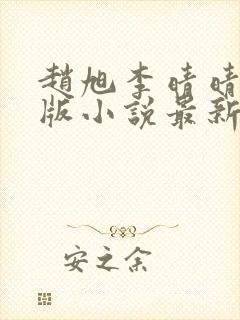 趙旭李晴晴
版小說最新
安之余